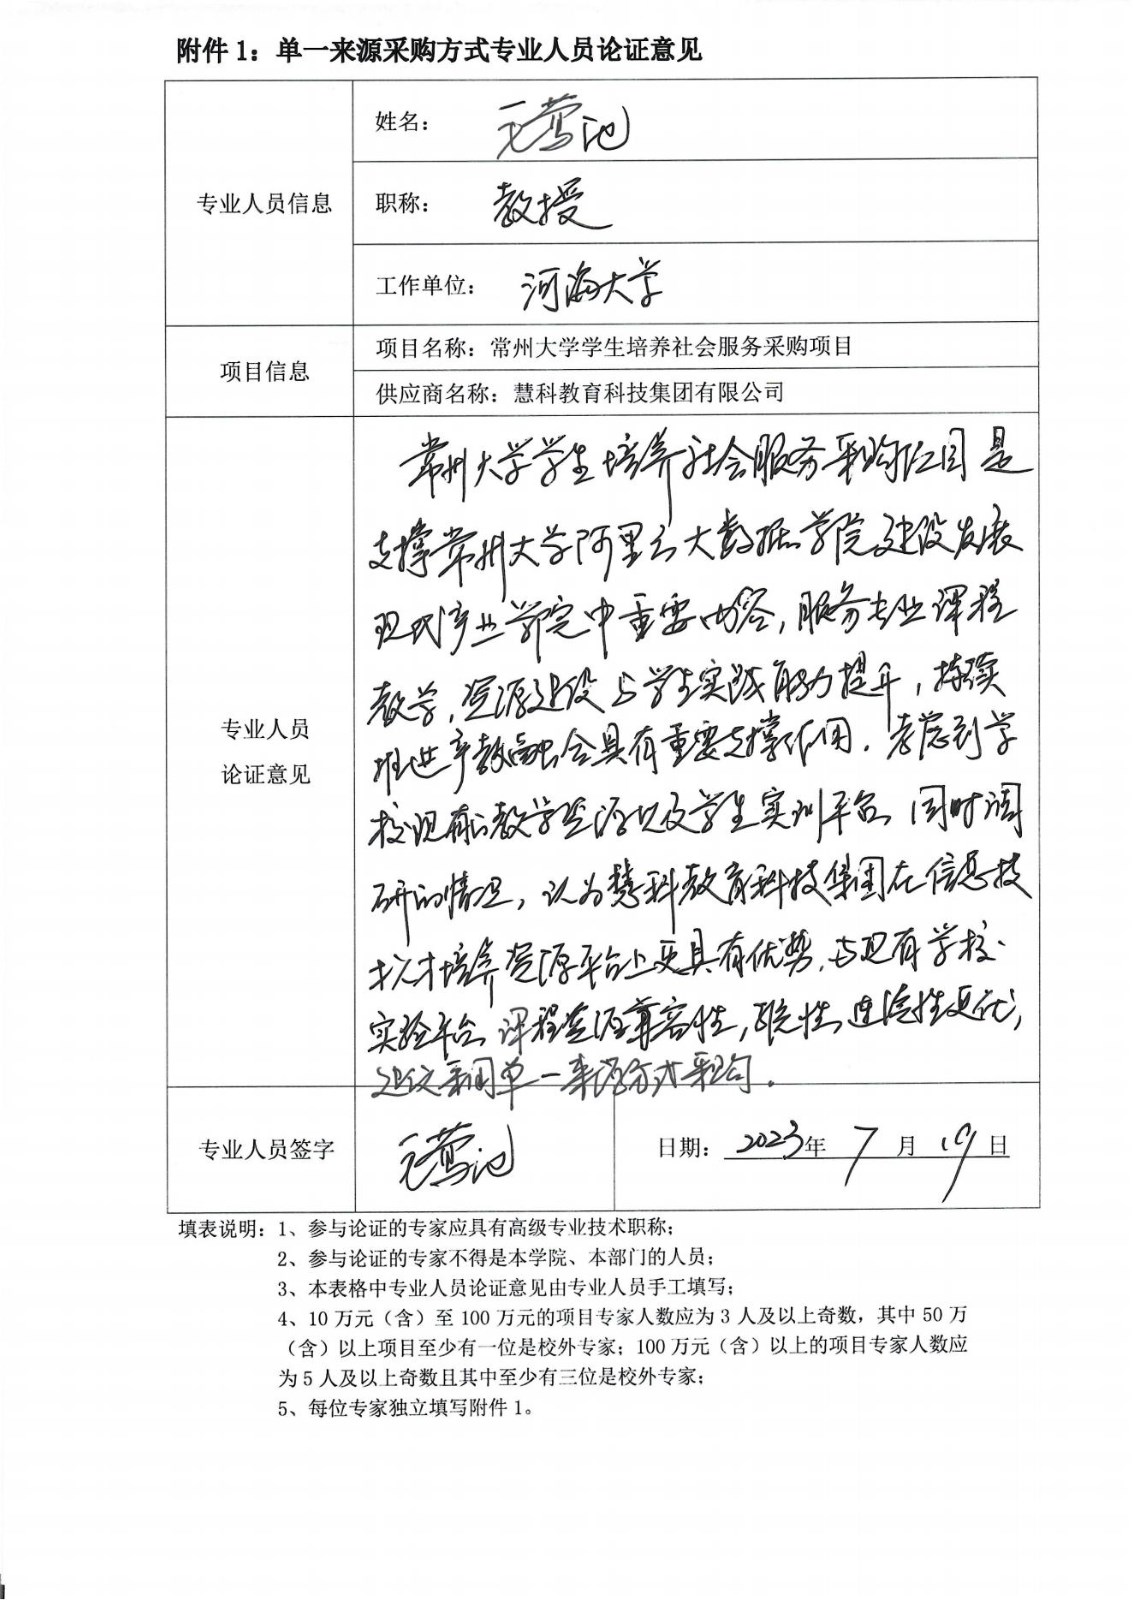 附件 1：单一来源采购方式专业人员论证意见
专业人员信息
姓名： 毛莺池
职称： 教授
工作单位： 河海大学
项目信息
项目名称：常州大学学生培养社会服务采购项目
供应商名称：慧科教育科技集团有限公司
专业人员
论证意见
常州大学学生培养社会服务采购项目是
支撑常州大学阿里云大数据学院建设发展
现代产业学院中重要内容，服务专业课程
教学，资源建设与学生实践能力提升，持续
推进产教融合具有重要支撑作用。考虑到学
校现有的教学资源以及学生实训平台，同时调
研的情况，认为慧科教育科技集团在信息技
术人才培养资源平台上更具有优势，与现有学校
实验平台、课程资源兼容性，稳定性，连续性更优，
建议采用单一来源方式采购。
专业人员签字
毛莺池
日期： 2023年 7 月 19 日
填表说明：1、参与论证的专家应具有高级专业技术职称；
2、参与论证的专家不得是本学院、本部门的人员；
3、本表格中专业人员论证意见由专业人员手工填写；
4、10 万元（含）至 100 万元的项目专家人数应为 3 人及以上奇数，其中 50 万
（含）以上项目至少有一位是校外专家；100 万元（含）以上的项目专家人数应
为 5 人及以上奇数且其中至少有三位是校外专家；
5、每位专家独立填写附件 1。